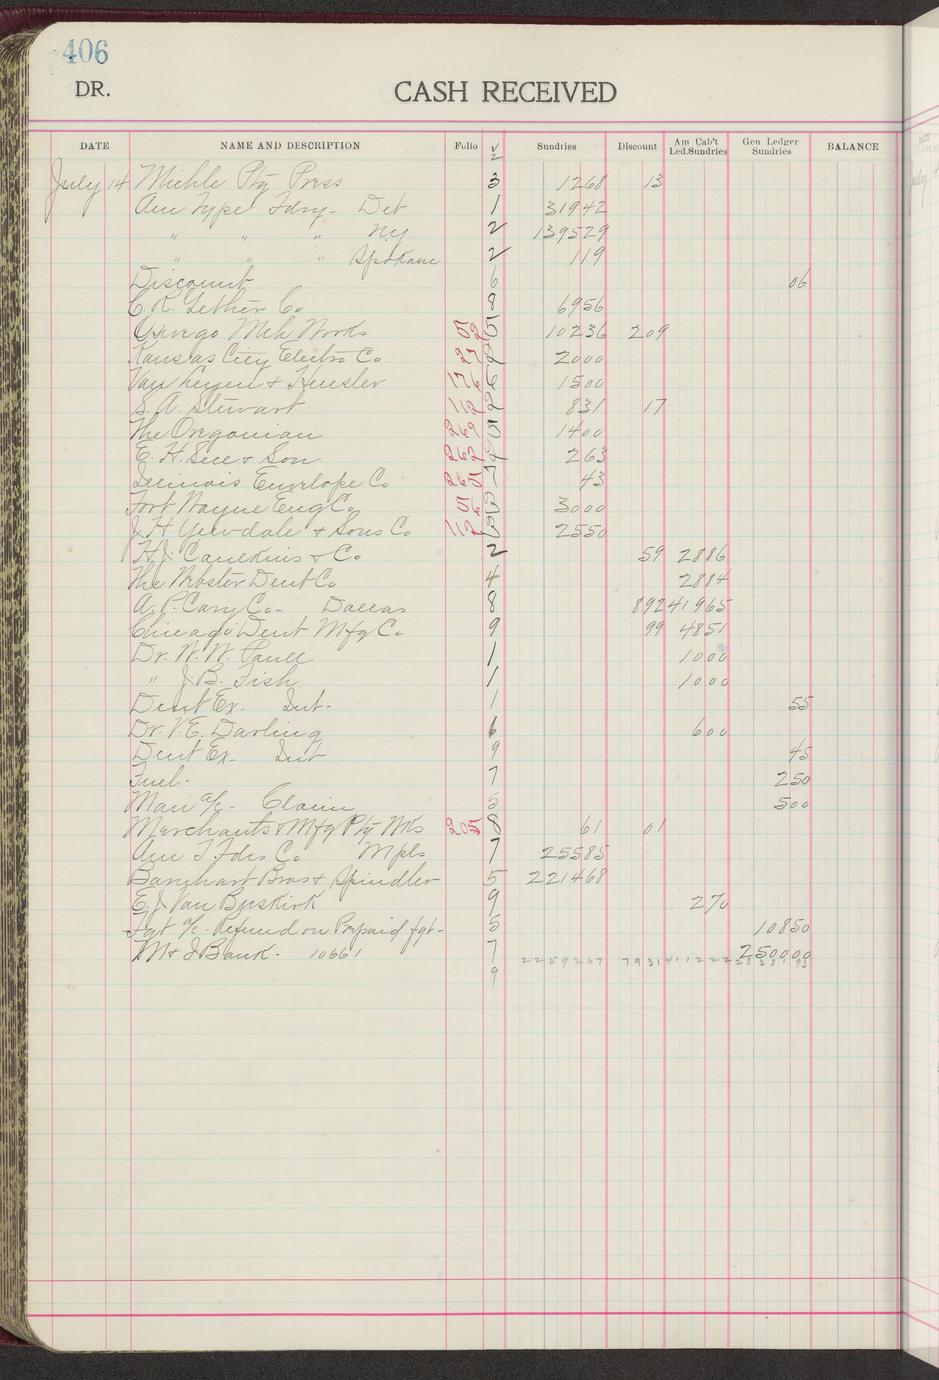 406
DR. CASH RECEIVED
DATE NAME AND DESCRIPTION Folio Sundries Discount Am Cab't Led.Sundries Gen Ledger Sundries BALANCE
2
July 14 Miehle Ptg Press 3 1268 13
Am Type Fdry - Det 1 31942
" " " NY. 2 139529
" " " Spokane 2 119
Discount 6 06
C. R. Gether Co 8 6956
Oswego Mch Works 5 10236 209
Kansas City Electro Co 2000
Van Leyen & Hensler 176 6 1500
S. A. Stewart 112 2 831 17
The Oregonian 269 5 1400
E. H. & Son 262 263
Illinois Envelope Co 265 7 43
Fort Wayne Eng Co. 3000
J. H. Yewdale & Sons Co 2550
H. J. Caulkins & Co 2 59 2886
The Webster Dent Co 4 2884
A. P. Cary Co - Dallas 8 892 41965
Chicago Dent Mfg Co. 9 99 4851
Dr. W. W. 1 1000
" J. B. Fish 1 1000
Dent Ex. Int. 1 55
Dr. V. E. Darling 6 600
Dent Ex. Int 9 45
Fuel. 7 250
Man a/c - Claim 5 500
Merchants & Mfg Ptg Wks 205 8 61 01
Am T. Fdrs Co. Mpls 7 25585
Barnhart Bros & Spindler 5 221468
E. J. Van Buskirk 9 270
Fgt a/c - Refund on Prepaid fgt - 5 10850
M & I Bank. 10661 7 250000
9 2259267 7931 411222